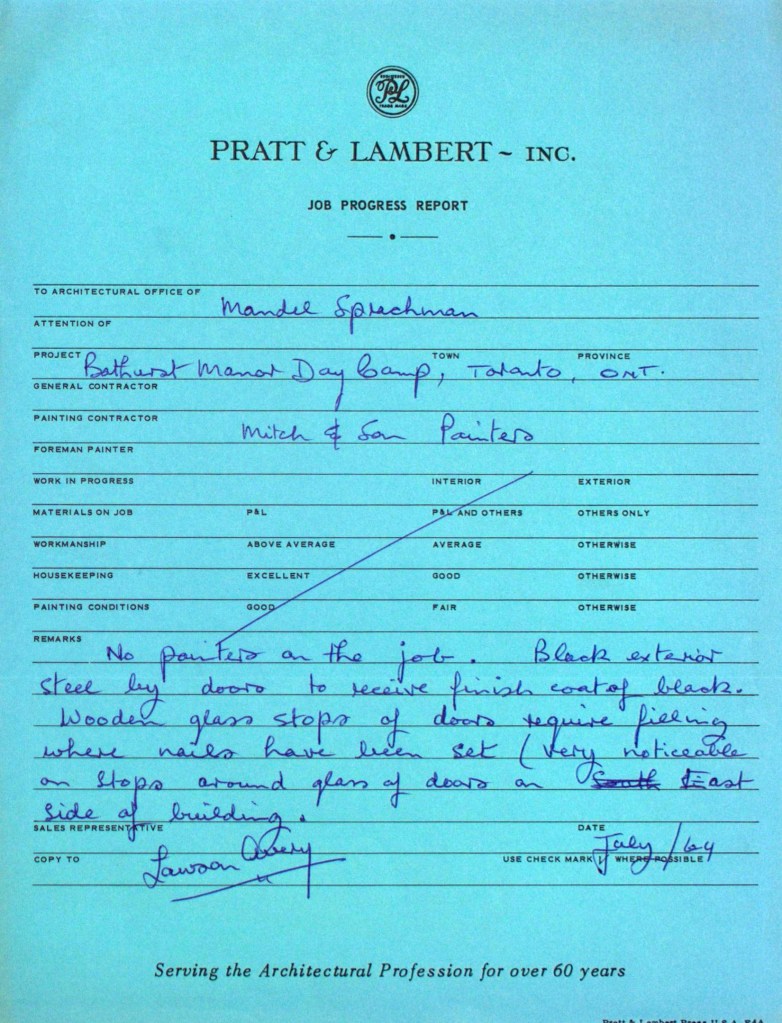 PRATT & LAMBERT ~ INC.
JOB PROGRESS REPORT
TO ARCHITECTURAL OFFICE OF Mandel Sprachman
ATTENTION OF
PROJECT Bathurst Manor Day Camp, TOWN Toronto, PROVINCE ONT.
GENERAL CONTRACTOR
PAINTING CONTRACTOR Mitch & Son Painters
FOREMAN PAINTER
WORK IN PROGRESS INTERIOR EXTERIOR
MATERIALS ON JOB P&L P&L AND OTHERS OTHERS ONLY
WORKMANSHIP ABOVE AVERAGE AVERAGE OTHERWISE
HOUSEKEEPING EXCELLENT GOOD OTHERWISE
PAINTING CONDITIONS GOOD FAIR OTHERWISE
REMARKS No painters on the job. Black exterior
steel by doors to receive finish coat of black.
Wooden glass stops of doors require filling
where nails have been set (very noticeable
on stops around glass of doors on South East
side of building.
SALES REPRESENTATIVE Lawson Avery DATE July/64
COPY TO USE CHECK MARK √ WHERE POSSIBLE
Serving the Architectural Profession for over 60 years
Pratt & Lambert Press U.S.A.